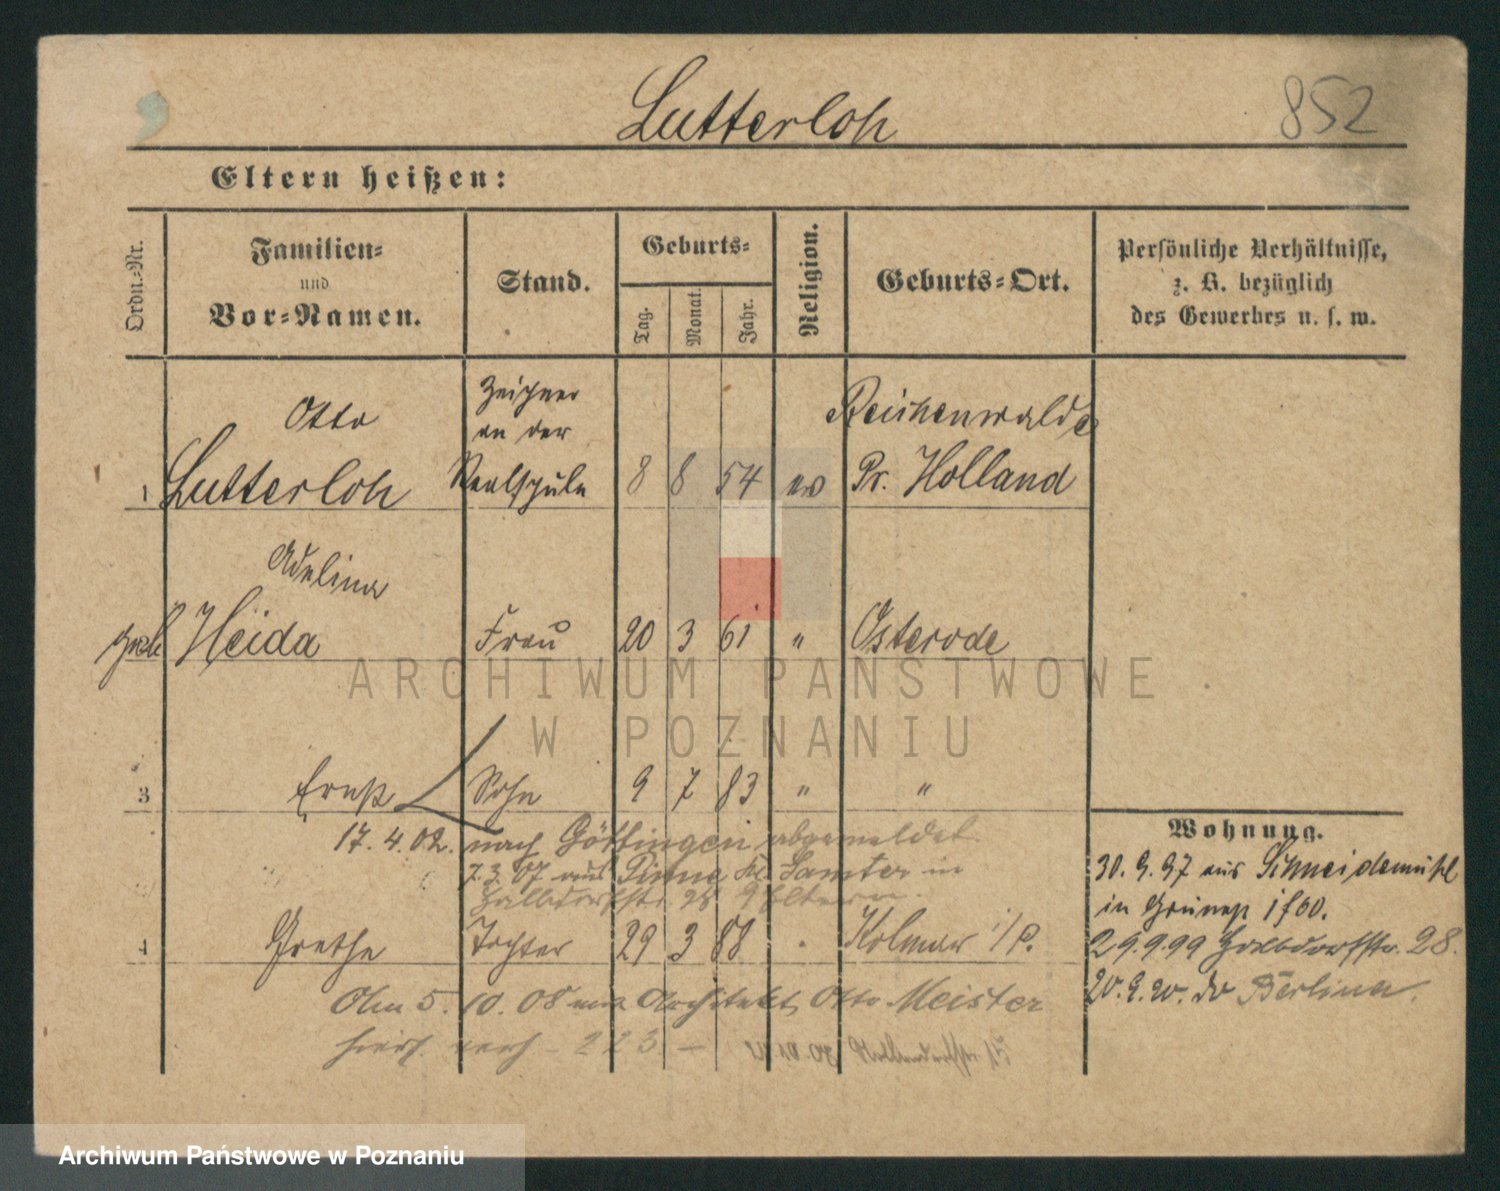 Lutterloh
852
Eltern heißen:
Ordn.-Nr.
Familien-
und
Vor-Namen.
Stand.
Geburts-
Tag.
Monat.
Jahr.
Religion.
Geburts-Ort.
Persönliche Verhältnisse,
z. B. bezüglich
des Gewerbes u. s. w.
Otto
Zeichner
an der
Reichenwalde
1 Lutterloh Realschule 8 8 54 ev Pr. Holland
Adelina
geb Heida Frau 20 3 61 " Osterode
3 Ernst Sohn 9 7 83 " "
17. 4. 02. nach Göttingen abgemeldet.
7.3.07 aus Pinne Kr. Samter in
28 Eltern
4 Grethe Tochter 29 3 88 Kolmar i/P.
Am 5. 10. 08 Architekt Otto Meister
223
Wohnung.
30. 9. 97 aus Schneidemühl
in
29.9.99 28.
20. 9. 20. Berlin
ARCHIWUM PAŃSTWOWE
W POZNANIU
Archiwum Państwowe w Poznaniu